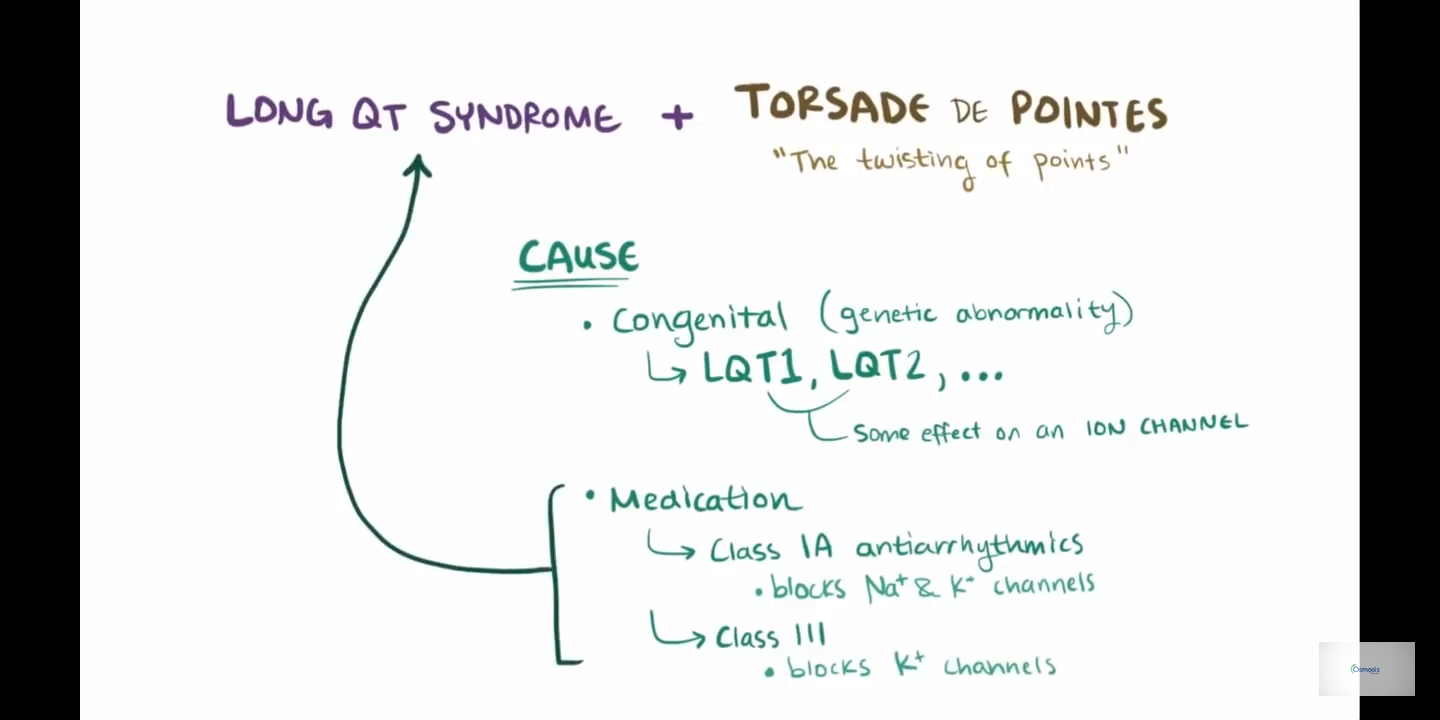 LONG QT SYNDROME + TORSADE DE POINTES
"The twisting of points"
CAUSE
• Congenital (genetic abnormality)
↳ LQT1, LQT2, ...
Some effect on an ION CHANNEL
• Medication
↳ Class IA antiarrhythmics
• blocks Na⁺ & K⁺ channels
↳ Class III
• blocks K⁺ channels
Osmosis